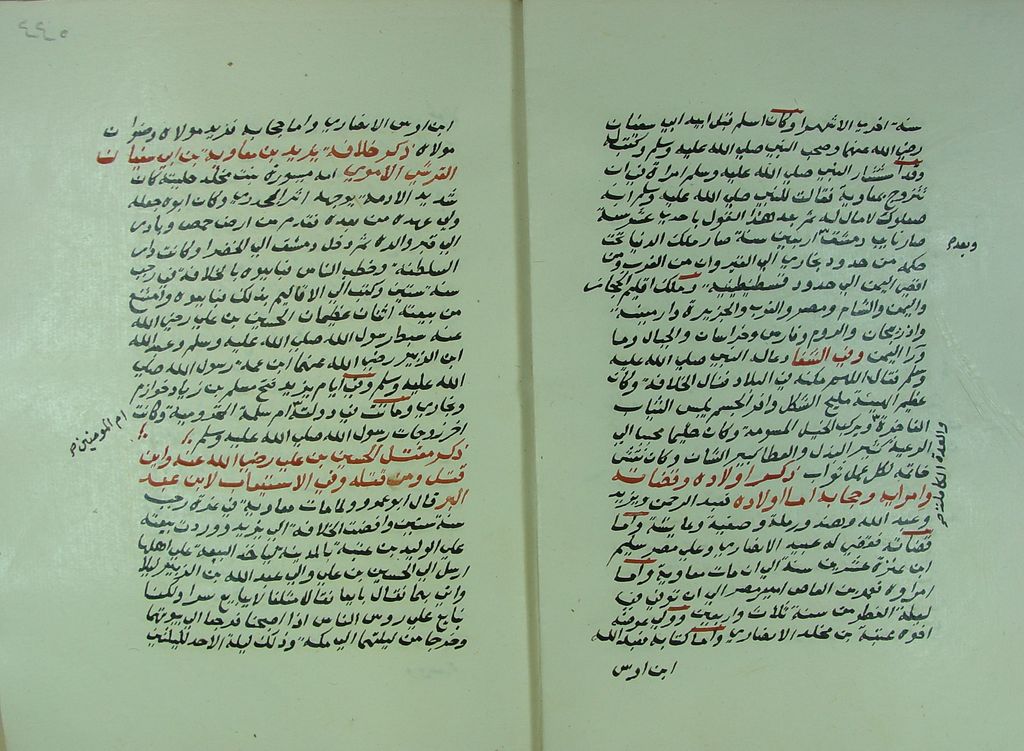 سنة اقرب الاشهر وكان اسلم قبل ابيه ابي سفيان
رضي الله عنهما وصحب النبي صلى الله عليه وسلم وكتب له
وقد استشار النبي صلى الله عليه وسلم امراة في ان
تتزوج بمعاوية فقالت للنبي صلى الله عليه وسلم انه
صعلوك لا مال له ثم بعد هذا القول باحدى عشر سنة
صار نايب دمشق اربعين سنة صار ملك الدنيا تحت
حكمه من حدود بخارى الى القيروان من الغرب ومن
اقصى اليمن الى حدود قسطنطينية وملك اقليم الحجاز
واليمن والشام ومصر والغرب والجزيرة وارمينية
واذربيجان والروم وفارس وخراسان والجبال وما
ورا اليمن وفي الشفا دعا له النبي صلى الله عليه
وسلم فقال اللهم مكنه في البلاد فنال الخلافة وكان
عظيم الهيبة مليح الشكل وافر الحسم يلبس الثياب
الفاخرة ويركب الخيل المسومة وكان حليما محببا الى
الرعية كثير البذل والعطا كبير الشان وكان نقش
خاتمه لكل عمل ثواب ذكر اولاده وقضاته
وامرايه وحجابه اما اولاده فعبد الرحمن ويزيد
وعبد الله وهند ورملة وصفية وعايشة واما
قضاته فقضى له عبيد الانصاري وعلى مصر سليم
ابن عنزة عشرين سنة الى ان مات معاوية واما
امراوه فعمرو بن العاص امير مصر الى ان توفي في
ليلة الفطر من سنة ثلاث واربعين وولى عوضه
اخوه عتبة بن مخلد الانصاري واما كتابه فعبد الله
ابن اوس
وبعده
والعدة الكاملة
٤٤٥
ابن اوس الانصاري واما حجابه فزيد مولاه وصفوان
مولاه ذكر خلافة يزيد بن معاوية بن ابي سفيان
القرشي الاموي امه ميسورة بنت مخلد حليته كان
شديد الادمة بوجهه اثر الجدري وكان ابوه جعله
ولي عهده من بعده فقدم من ارض حمص وبادر
الى قبر والده ثم دخل دمشق الى الخضرا وكانت دار
السلطنة وخطب الناس فبايعوه بالخلافة في رجب
سنة ستين وكتب الى الاقاليم بذلك فبايعوه وامتنع
من بيعته اثنان عظيمان الحسين بن علي رضي الله
عنه سبط رسول الله صلى الله عليه وسلم وعبد الله
ابن الزبير رضي الله عنهما ابن عمة رسول الله صلى
الله عليه وسلم وفي ايام يزيد فتح مسلم بن زياد خوارزم
وبخارى وماتت في دولته ام سلمة المخزومية وكانت
اخر زوجات رسول الله صلى الله عليه وسلم
ذكر مقتل الحسين بن علي رضي الله عنه واين
قتل ومن قتله وفي الاستيعاب لابن عبد
البر قال ابو عمر ولما مات معاوية في غرة رجب
سنة ستين وافضت الخلافة الى يزيد ووردت بيعته
على الوليد بن عتبة بالمدينة لياخذ البيعة على اهلها
ارسل الى الحسين بن علي والى عبد الله بن الزبير ليلا
واتى بهما فقال بايعا فقالا مثلنا لا يبايع سرا ولكننا
نبايع على روس الناس اذا اصبحنا فرجعا الى بيوتهما
وخرجا من ليلتهما الى مكة وذلك ليلة الاحد لليلتين
ام المومنين